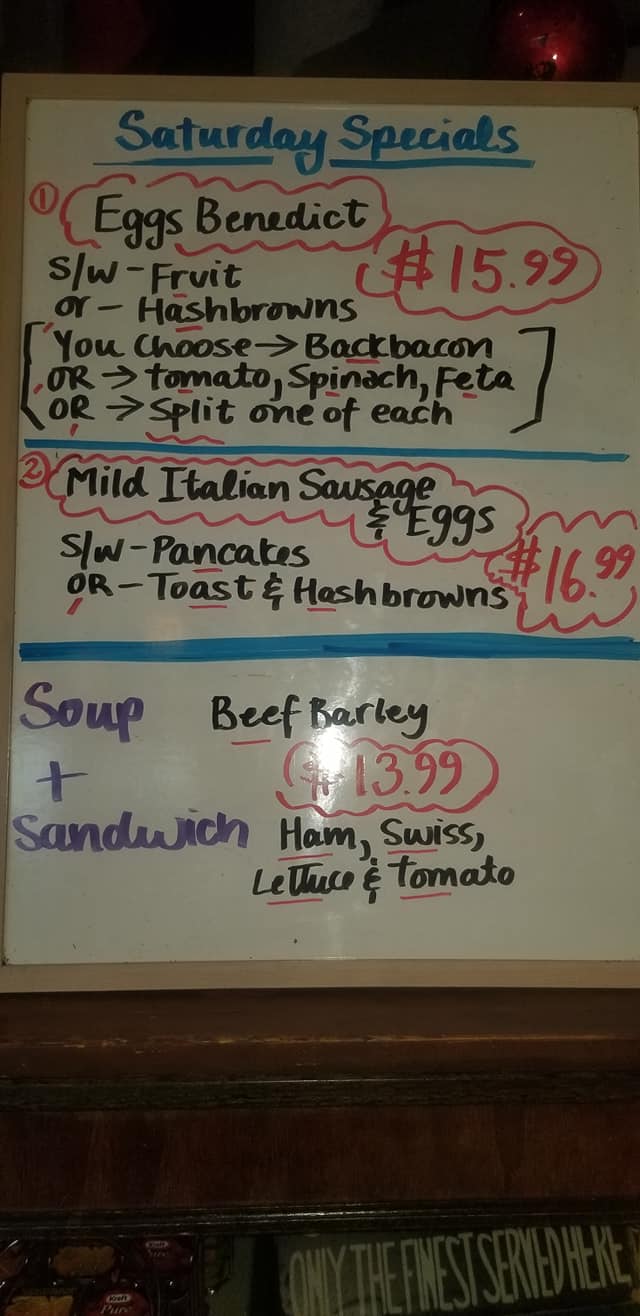 Saturday Specials
① Eggs Benedict
$15.99
S/W - Fruit
or - Hashbrowns
[You Choose → Backbacon
OR → tomato, Spinach, Feta
OR → Split one of each]
② Mild Italian Sausage
& Eggs
$16.99
S/W - Pancakes
OR - Toast & Hashbrowns
Soup Beef Barley
+ $13.99
Sandwich Ham, Swiss,
Lettuce & Tomato
ONLY THE FINEST SERVED HERE
Kraft
Kraft
Pure